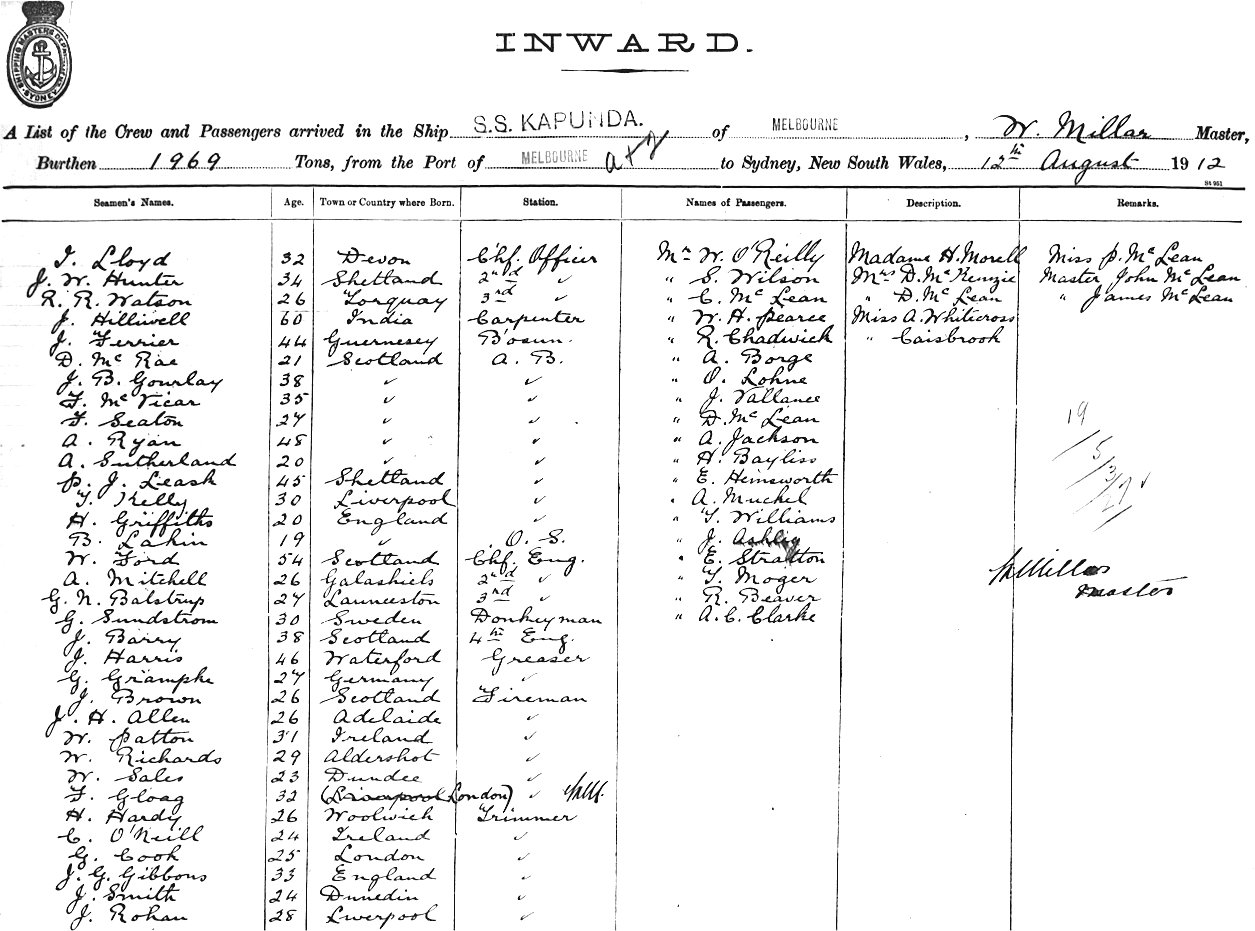 SHIPPING MASTER'S DEPARTMENT SYDNEY
INWARD.
A List of the Crew and Passengers arrived in the Ship S.S. KAPUNDA. of MELBOURNE, W. Millar Master,
Burthen 1969 Tons, from the Port of MELBOURNE to Sydney, New South Wales, 12th August 1912
Seamen's Names. Age. Town or Country where Born. Station. Names of Passengers. Description. Remarks.
I. Lloyd 32 Devon Chf. Officer Mr W. O'Reilly Madame H. Morell Miss P. McLean
J. W. Hunter 34 Shetland 2nd " " S. Wilson Mrs D. McKenzie Master John McLean
R. R. Watson 26 Torquay 3rd " " C. McLean " D. McLean " James McLean
J. Hilliwell 60 India Carpenter " W. H. Pearce Miss A. Whitcross
J. Ferrier 44 Guernesey B'osun. " R. Chadwick " Caisbrook
D. McRae 21 Scotland A. B. " A. Borge
J. B. Gourlay 38 " " " O. Lohne
F. McVicar 35 " " " J. Vallance
F. Seaton 27 " " " D. McLean
A. Ryan 48 " " " A. Jackson
A. Sutherland 20 " " " H. Bayliss
P. J. Leask 45 Shetland " " E. Hemsworth
T. Kelly 30 Liverpool " " A. Muchel
H. Griffiths 20 England " " T. Williams
B. Lakin 19 " O. S. " J. Ashley
W. Ford 54 Scotland Chf. Eng. " E. Stratton
A. Mitchell 26 Galashiels 2nd " " T. Moger
G. N. Balstrup 27 Launceston 3rd " " R. Beaver
G. Sundstrom 30 Sweden Donkeyman " A. C. Clarke
J. Barry 38 Scotland 4th Eng.
J. Harris 46 Waterford Greaser
G. Gramphe 27 Germany "
J. Brown 26 Scotland Fireman
J. H. Allen 26 Adelaide "
W. Patton 31 Ireland "
W. Richards 29 Aldershot "
W. Sales 23 Dundee "
F. Gloag 32 (Liverpool London) "
H. Hardy 26 Woolwich Trimmer
C. O'Neill 24 Ireland "
G. Cook 25 London "
J. G. Gibbons 33 England "
J. Smith 24 Dunedin "
J. Rohan 28 Liverpool "
19
/5/3/27
W Millar
Master